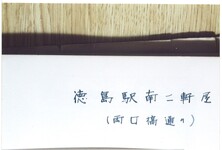 徳島駅前二軒屋
(西口橋通り)